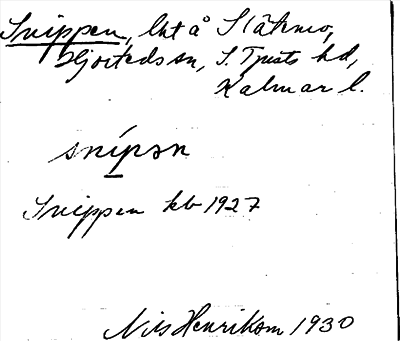 Snippen, lht å Slätmo,
Hjorteds sn, S. Tjusts hd,
Kalmar l.
snípən
Snippen kb 1927
Nils Henrikson 1930